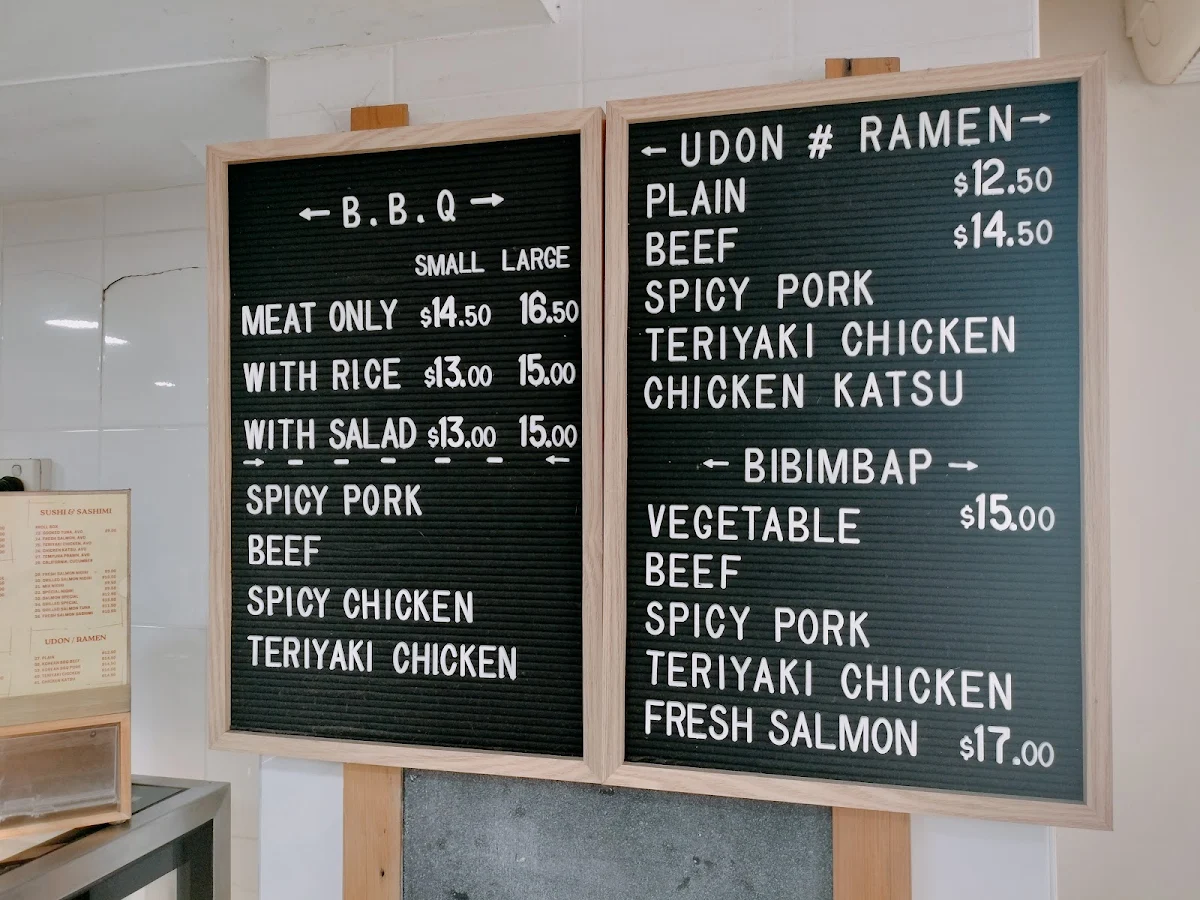 ← B.B.Q →
SMALL LARGE
MEAT ONLY $14.50 16.50
WITH RICE $13.00 15.00
WITH SALAD $13.00 15.00
→ - - - - - ←
SPICY PORK
BEEF
SPICY CHICKEN
TERIYAKI CHICKEN
← UDON # RAMEN →
PLAIN $12.50
BEEF $14.50
SPICY PORK
TERIYAKI CHICKEN
CHICKEN KATSU
← BIBIMBAP →
VEGETABLE $15.00
BEEF
SPICY PORK
TERIYAKI CHICKEN
FRESH SALMON $17.00
SUSHI & SASHIMI
UDON / RAMEN